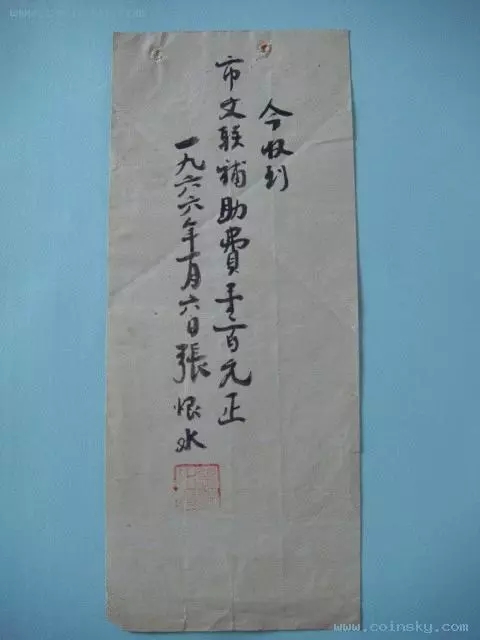 今收到
市文联補助費壹百元正
一九六六年一月六日張恨水
www.coinsky.com
www.coinsky.com